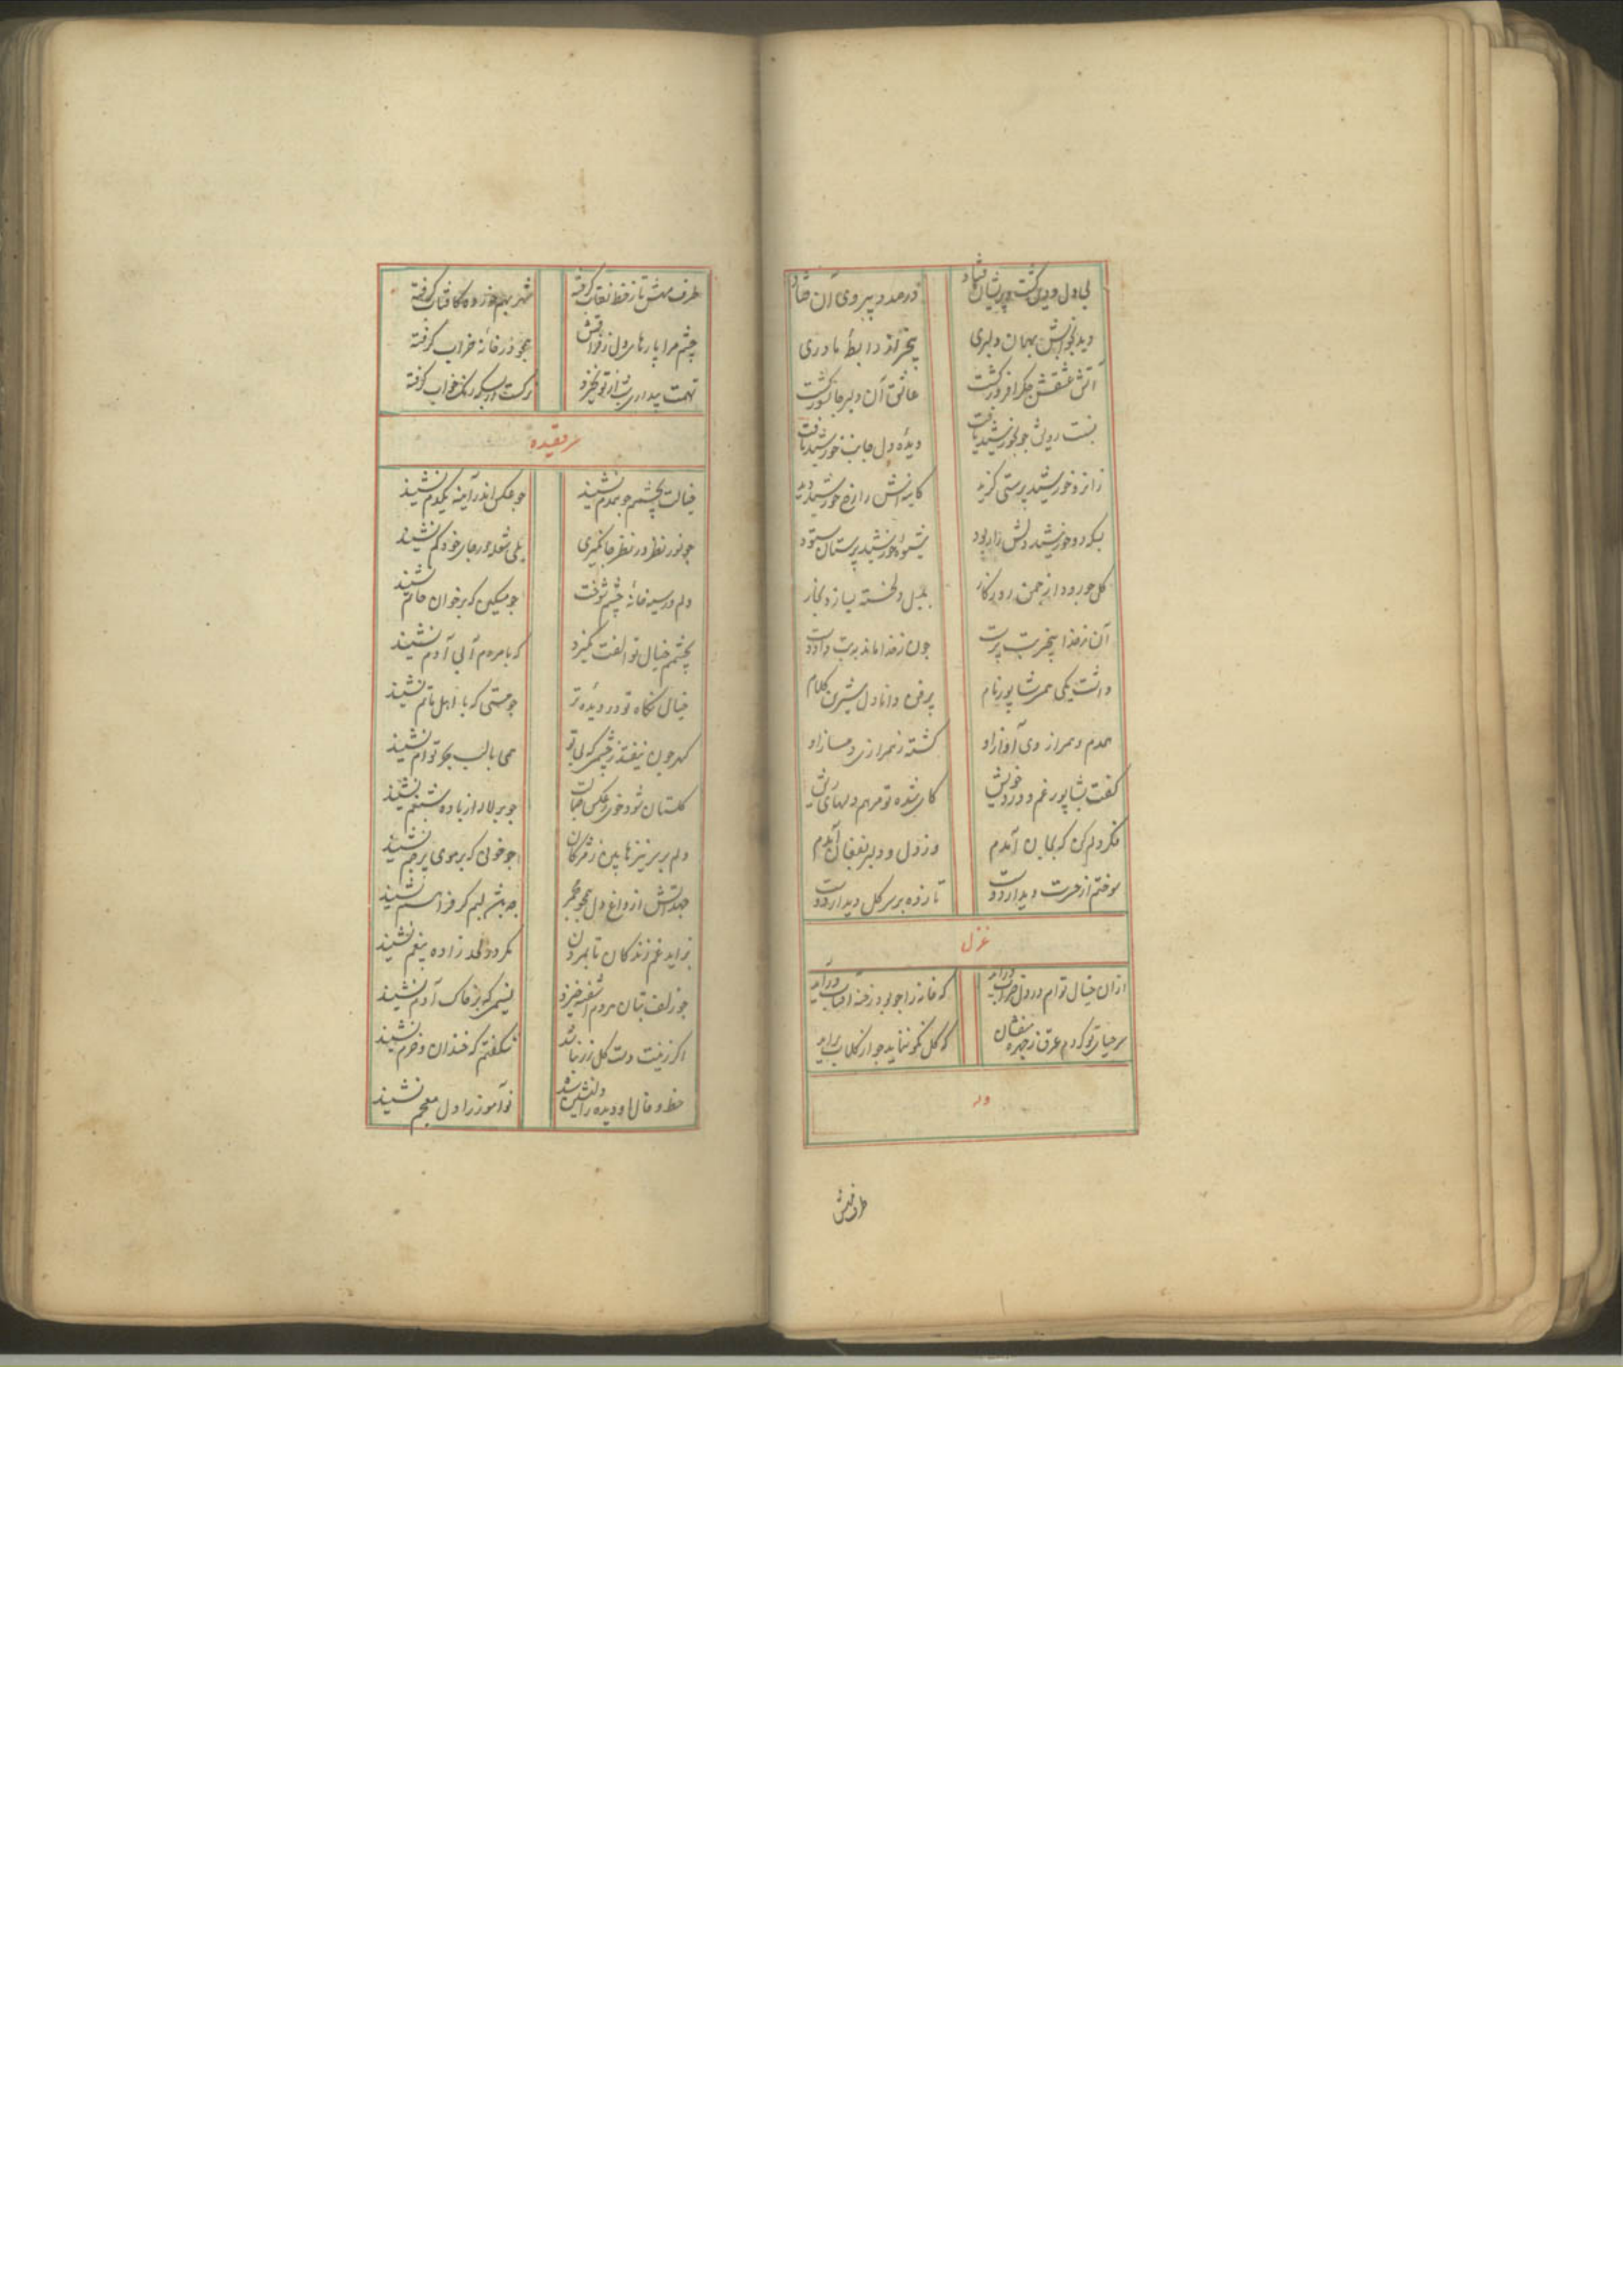 بی دل و دین گشت و پریشان فتاد در صدد پیروی آن فتاد
دید بخوابش بهمان دلبری بیخبر از رابطهٔ مادری
آتش عشقش جگر افروز گشت عاشق آن دلبر جانسوز گشت
نسبت رویش چو بخورشید یافت دیدهٔ دل جانب خورشید تافت
زانرو خورشید پرستی گزید کاینهٔ اش را رخ خورشید دید
بسکه دو خورشید دلش زار بود شیوهٔ خورشید پرستان ستود
گل چو رود از چمن روزگار بلبل دلخسته بسازد بخار
آن ز خدا بیخبر بت پرست چون ز خدا ماند به بت داد دست
داشت یکی همسر شاپور نام پر فن و دانا دل شیرین کلام
همدم و همراز وی آواز او گشته ز همراز دمساز او
گفت بشاپور غم و درد خویش کای شده تو مرهم دلهای ریش
فکر دلم کن که بجان آمدم وز دل و دلبر بفغان آمدم
سوختم از حسرت دیدار دوست تا زده بر سر گل دیدار دوست
غزل
از ان خیال توام در دل خراب درآید که خانه را چو بود رخنه آفتاب درآید
سر حیات تو گردم عرق ز چهره میفشان که گل نکو ننماید چو از گلاب برآید
وله
طرف مهش
طرف مهش تا ز خط نقاب گرفته شهر بهم خورده کافتاب گرفته
چشم مرا پارهای دل ز فراقش همچو در خانهٔ خراب گرفته
تهمت بیداری شب از تو نخیزد نرگست از بسکه رنگ خواب گرفته
سر قصیده
خیالت بچشمم چو همدم نشیند چو عکس اندر آینه یکدم نشیند
چو نور نظر در نظر جا نگیری بلی شعله در جای خود کم نشیند
دلم در سیه خانهٔ چشم شوخت چو مسکین که بر خوان حاتم نشیند
بچشمم خیال تو الفت نگیرد که با مردم آبی آدم نشیند
خیال نگاه تو در دیدهٔ تر چو مستی که با اهل ماتم نشیند
گهر چون نیفتد ز چشمم که بی تو همی با لب بحر توام نشیند
گلستان شود خور ز عکس جمالت چو بر لاله از باده شبنم نشیند
دلم بر سر نیزها بین ز مژگان چو خونی که بر موی پرچم نشیند
جهد آتش از داغ دل همچو مجمر چه پنبه نهم گر فراهم نشیند
نزاید غم زندگان تا بمردن نگردد لحد زاده بیغم نشیند
چو زلف بتان مردم آشفته خیزد نسیمی که بر خاک آدم نشیند
اگر زینت دست گل زر نباشد شگفتم که خندان و خرم نشیند
خط و خال او دیده را دلنشین شد نوآموز را دل معجم نشیند